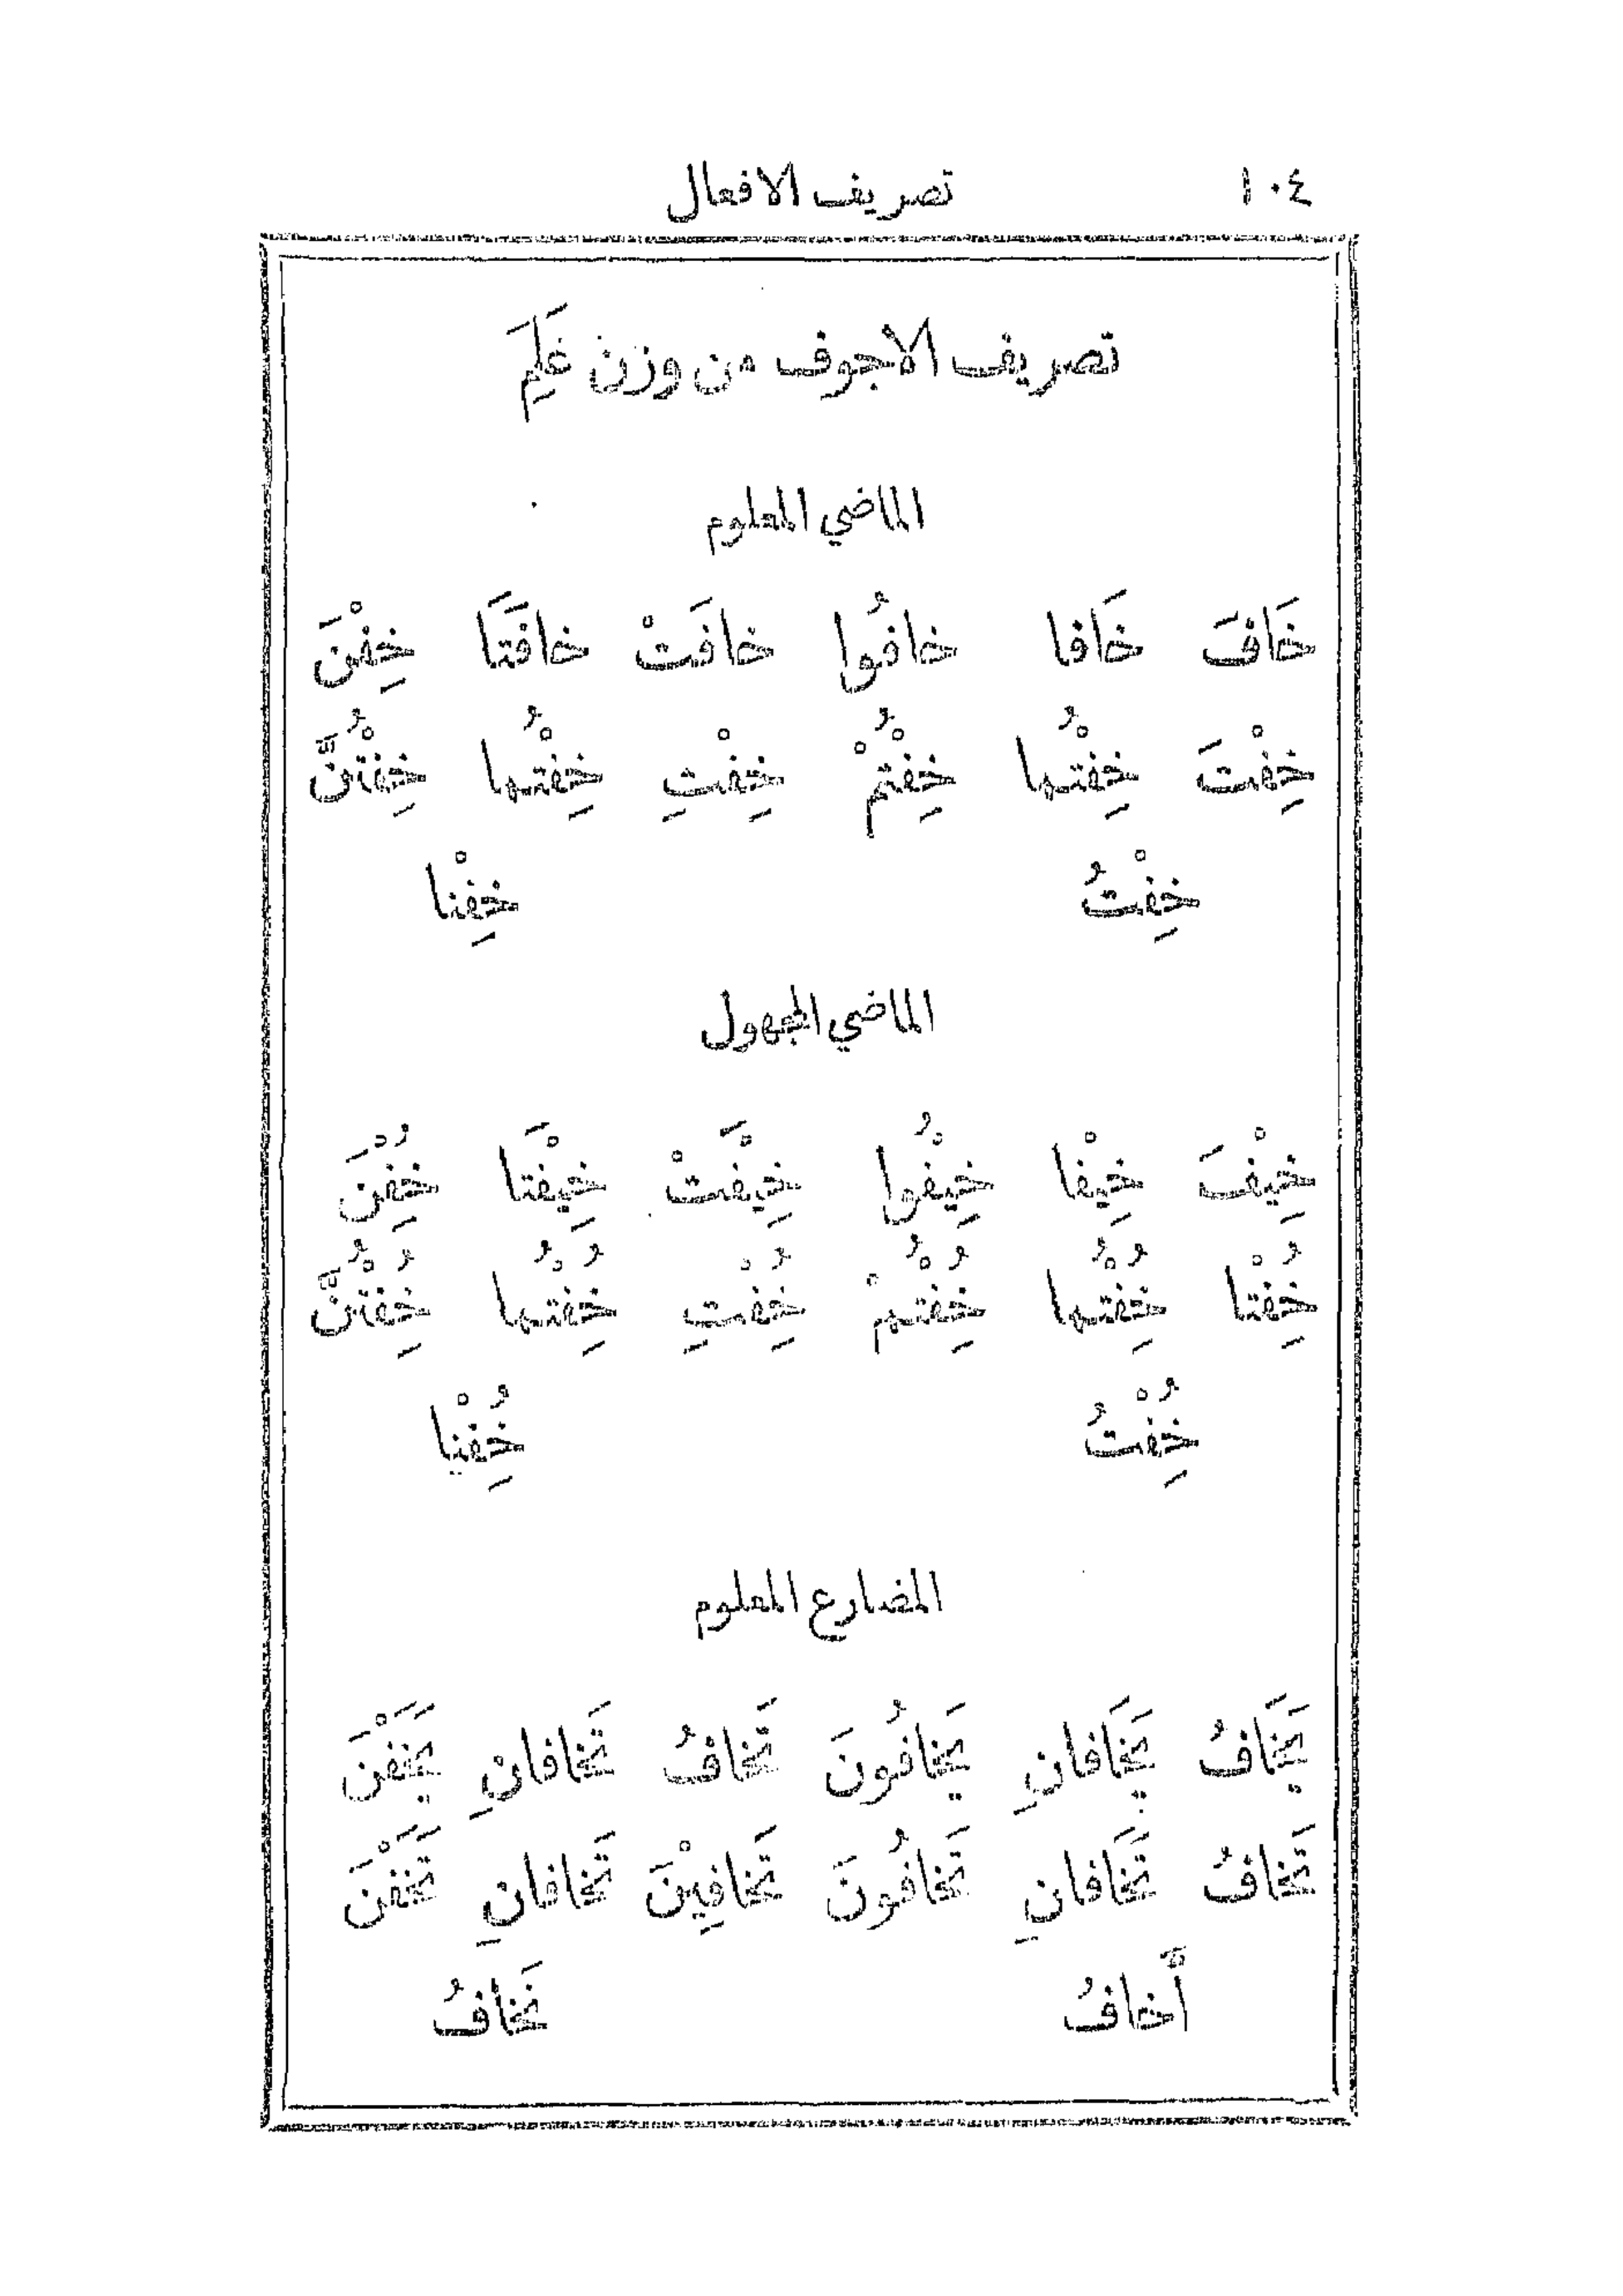 ١٠٤ تصريف الافعال
تصريف الاجوف من وزن عَلِمَ
الماضي المعلوم
خَافَ خَافا خافُوا خافَتْ خافَتَا خِفْنَ
خِفْتَ خِفْتُما خِفْتُمْ خِفْتِ خِفْتُما خِفْتُنَّ
خِفْتُ خِفْنا
الماضي المجهول
خِيْفَ خِيْفا خِيْفُوا خِيْفَتْ خِيْفَتا خُِفْنَ
خُِفْتا خُِفْتُما خُِفْتُمْ خُِفْتِ خُِفْتُما خُِفْتُنَّ
خُِفْتُ خُِفْنا
المضارع المعلوم
يَخَافُ يَخَافانِ يَخافُونَ تَخافُ تَخافانِ يَخَفْنَ
تَخافُ تَخَافانِ تَخافُونَ تَخافِيْنَ تَخافانِ تَخَفْنَ
أَخافُ نَخافُ